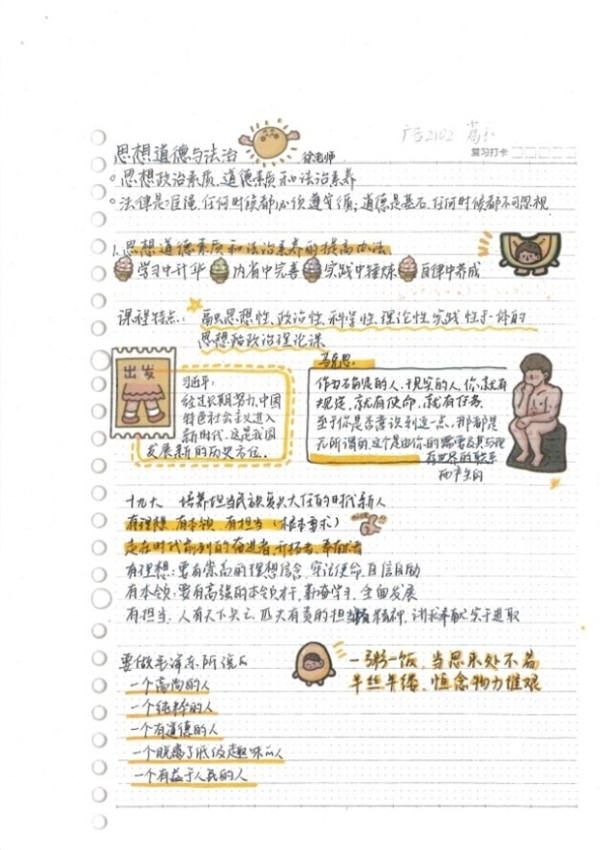 广告2102
复习打卡
思想道德与法治 徐老师
思想政治素质、道德素质和法治素养
法律是准绳,任何时候都必须遵守循;道德是基石,任何时候都不可忽视
1.思想道德素质和法治素养的提高办法
学习中升华 内省中完善 实践中锤炼 自律中养成
课程特点: 融思想性、政治性、科学性、理论性、实践性于一体的
思想政治理论课
出发
习近平:
经过长期努力,中国
特色社会主义进入
新时代,这是我国
发展新的历史方位.
马克思:
作为确定的人,现实的人,你就有
规定,就有使命,就有任务.
至于你是否意识到这一点,那都是
无所谓的,这个是由你的需要及其与现
存世界的联系
而产生的
十九大 培养担当民族复兴大任的时代新人
有理想 有本领 有担当(根本要求)
走在时代前列的奋进者、开拓者、奉献者
有理想:要有崇高的理想信念,牢记使命,自信自励
有本领:要有高强的本领才干,勤奋学习,全面发展
有担当:人有天下兴亡,匹夫有责的担当精神,讲求奉献,实干进取
要做毛泽东所说
一个高尚的人
一个纯粹的人
一个有道德的人
一个脱离了低级趣味的人
一个有益于人民的人
一粥一饭,当思来处不易
半丝半缕,恒念物力维艰